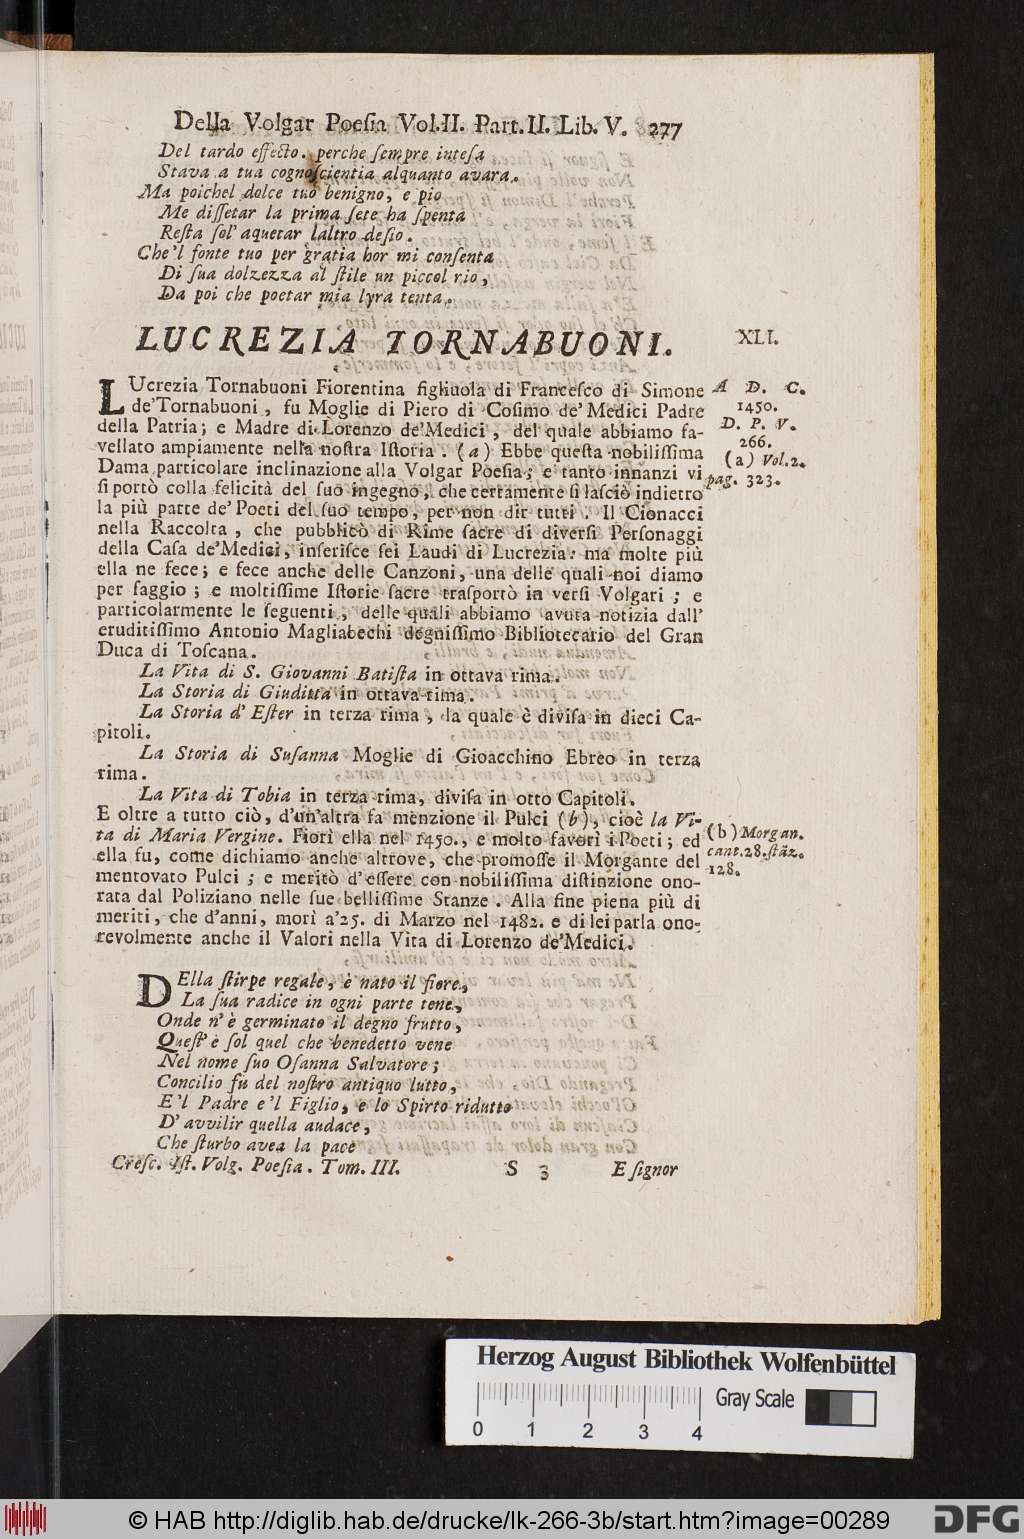 Della Volgar Poeſia Vol.II. Part.II. Lib. V. 277
Del tardo effecto. perche ſempre inteſa
Stava a tua cognoſcientia alquanto avara.
Ma poichel dolce tuo benigno, e pio
Me diſſetar la prima ſete ha ſpenta
Reſta ſol' aquetar laltro deſio.
Che'l fonte tuo per gratia hor mi conſenta
Di ſua dolzezza al ſtile un piccol rio,
Da poi che poetar mia lyra tenta.
LUCREZIA TORNABUONI. XLI.
LUcrezia Tornabuoni Fiorentina figliuola di Franceſco di Simone
de'Tornabuoni, fu Moglie di Piero di Coſimo de' Medici Padre
della Patria; e Madre di Lorenzo de'Medici, del quale abbiamo fa-
vellato ampiamente nella noſtra Iſtoria. (a) Ebbe queſta nobiliſſima
Dama particolare inclinazione alla Volgar Poeſia; e tanto innanzi vi
ſi portò colla felicità del ſuo ingegno, che certamente ſi laſciò indietro
la più parte de' Poeti del ſuo tempo, per non dir tutti. Il Cionacci
nella Raccolta, che pubblicò di Rime ſacre di diverſi Perſonaggi
della Caſa de'Medici, inſeriſce ſei Laudi di Lucrezia: ma molte più
ella ne fece; e fece anche delle Canzoni, una delle quali noi diamo
per ſaggio; e moltiſſime Iſtorie ſacre traſportò in verſi Volgari; e
particolarmente le ſeguenti, delle quali abbiamo avuta notizia dall'
eruditiſſimo Antonio Magliabechi degniſſimo Bibliotecario del Gran
Duca di Toſcana.
A D. C.
1450.
D. P. V.
266.
(a) Vol.2.
pag. 323.
La Vita di S. Giovanni Batiſta in ottava rima.
La Storia di Giuditta in ottava rima.
La Storia d' Eſter in terza rima, la quale è diviſa in dieci Ca-
pitoli.
La Storia di Suſanna Moglie di Gioacchino Ebreo in terza
rima.
La Vita di Tobia in terza rima, diviſa in otto Capitoli.
E oltre a tutto ciò, d'un'altra fa menzione il Pulci (b), cioè la Vi-
ta di Maria Vergine. Fiorì ella nel 1450., e molto favorì i Poeti; ed
ella fu, come dichiamo anche altrove, che promoſſe il Morgante del
mentovato Pulci; e meritò d'eſſere con nobiliſſima diſtinzione ono-
rata dal Poliziano nelle ſue belliſſime Stanze. Alla fine piena più di
meriti, che d'anni, morì a'25. di Marzo nel 1482. e di lei parla ono-
revolmente anche il Valori nella Vita di Lorenzo de'Medici.
(b) Morgan.
cant.28.ſtāz.
128.
DElla ſtirpe regale, è nato il fiore,
La ſua radice in ogni parte tene,
Onde n' è germinato il degno frutto,
Queſt' è ſol quel che benedetto vene
Nel nome ſuo Oſanna Salvatore;
Concilio fu del noſtro antiquo lutto,
E'l Padre e'l Figlio, e lo Spirto ridutto
D' avvilir quella audace,
Che ſturbo avea la pace
Creſc. Iſt. Volg. Poeſia. Tom. III. S 3 E ſignor
Herzog August Bibliothek Wolfenbüttel
Gray Scale
0 1 2 3 4
© HAB http://diglib.hab.de/drucke/lk-266-3b/start.htm?image=00289
DFG